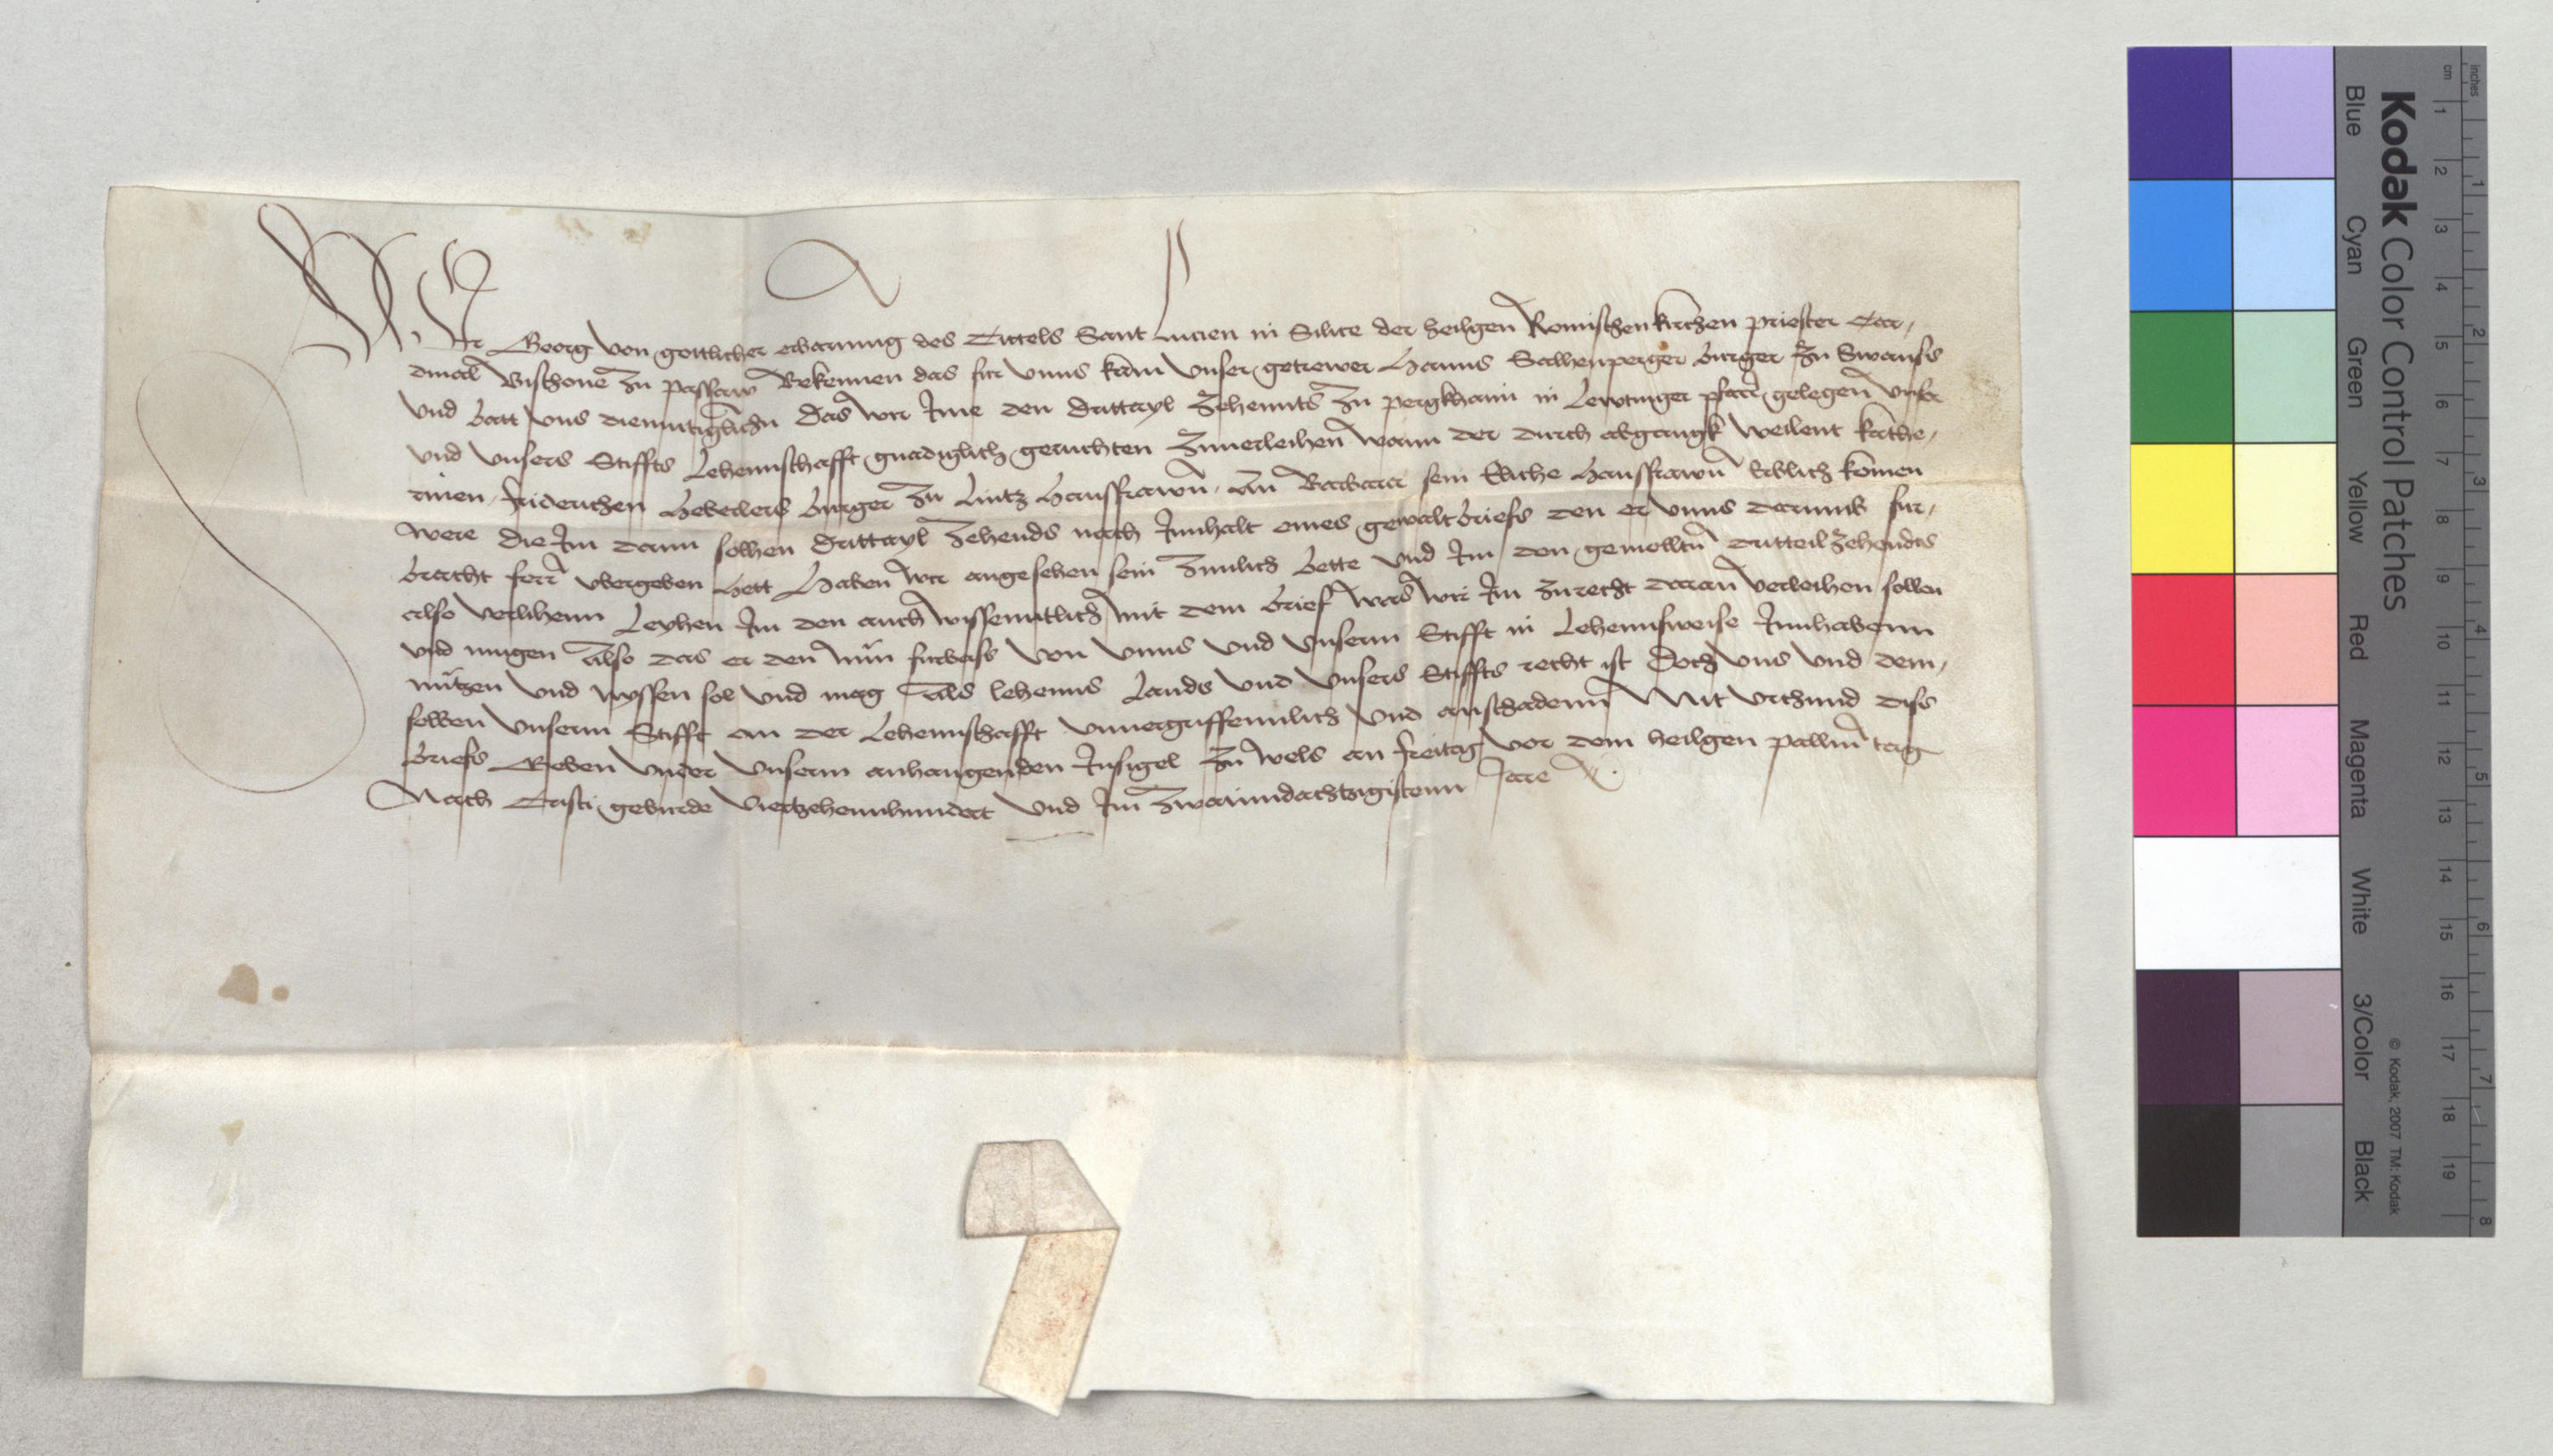 Wir Georg von gottlicher erbarmung des Tittels Sant Lucien in Silice der heiligen Romischen kirchen priester Car,
dinal Bischoue zu Passaw Bekennen das fur vnns kam vnser getrewer Hanns Salhenperger burger zu Swanss
vnd batt vns diemutiglichn Das wir Ime den drittayl zehennts zu pergkhaim in Lewtinger pfarr gelegen vnser
vnd vnsers Stiffts Lehennschafft gnadiglich geruchten zuuerleihen wann der durch abgangk weilent Kathe,
rinen Friderichen burger zu Linntz hausfrawn an Barbara sein Eliche hausfrawn Erblich komen
were die Im dann solhen drittayl zehends nach Innhalt eines gewaltbriefs den er vnns darumb fur,
bracht ferr vbergeben hett Haben wir angesehen sein zimlich bette vnd Im den gemelltn dritteil zehendts
also verlihenn Leyhen Im den auch wissenntlich mit dem brief was wir Im zurecht daran verleihen sollen
vnd mugen Also das er den nun furbass von vnns vnd vnserm Stifft in Lehennsweise Innhabenn
nutzen vnd nyssen sol vnd mag als lehenns Lands vnd vnsers Stiffts recht ist Doch vns vnd dem,
selben vnserm Stifft an der Lehennschafft vnuergriffennlich vnd anschadenn Mit vrchund diss
briefs Geben vnder vnserm anhangenden Insigel zu Wels an freitag vor dem heiligen pallm tag
Nach Cristi geburde viertzehennhundert vnd Im zwaiundachtzigistenn Jare
Kodak Color Control Patches
Blue Cyan Green Yellow Red Magenta White 3/Color Black
© Kodak, 2007 TM: Kodak
inches 1 2 3 4 5 6 7 8
cm 1 2 3 4 5 6 7 8 9 10 11 12 13 14 15 16 17 18 19